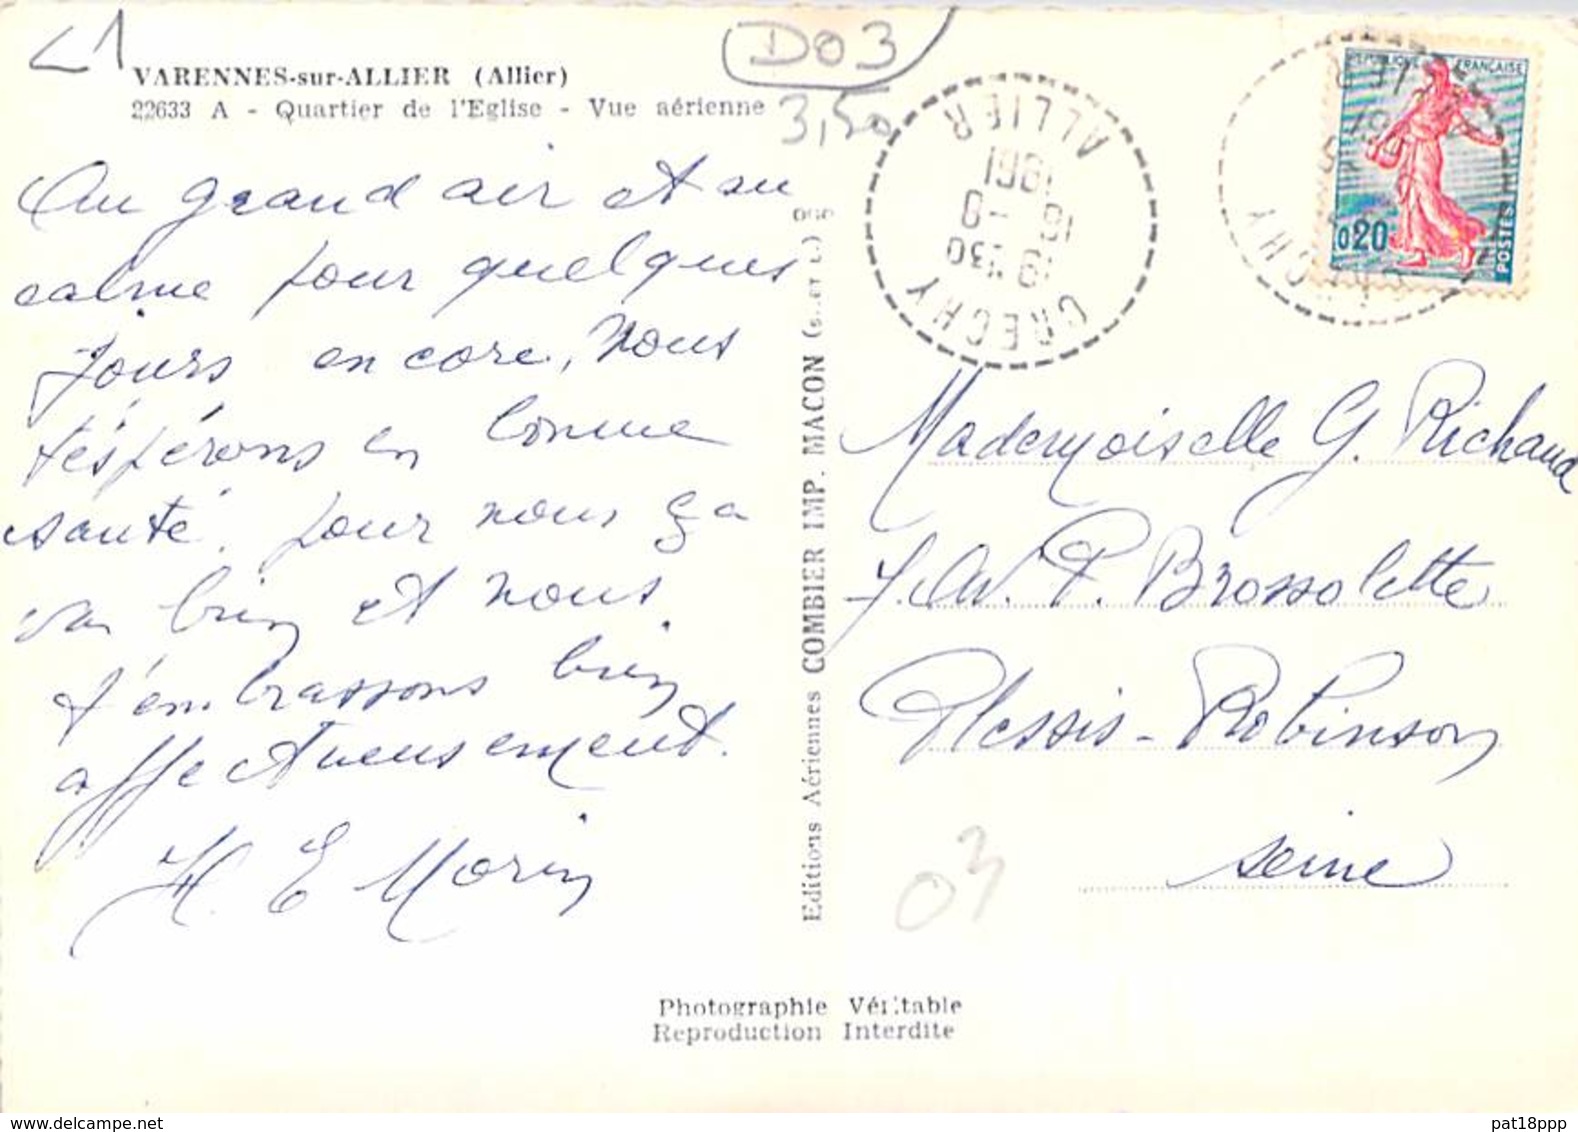 L1
D03
VARENNES-sur-ALLIER (Allier)
22633 A - Quartier de l'Eglise - Vue aérienne
3,50
Au grand air et au
calme pour quelques
jours encore, nous
t'espérons en bonne
santé. pour nous ça
va bien et nous
t'embrassons bien
affectueusement.
H. E Morin
Editions Aériennes COMBIER IMP. MACON
CRECHY
ALLIER
19 H30
16 - 8
1961
REPUBLIQUE FRANÇAISE
0,20
POSTES
Mademoiselle G. Richaud
7. Av. P. Brossolette
Plessis-Robinson
Seine
03
Photographie Véritable
Reproduction Interdite
www.delcampe.net
pat18ppp